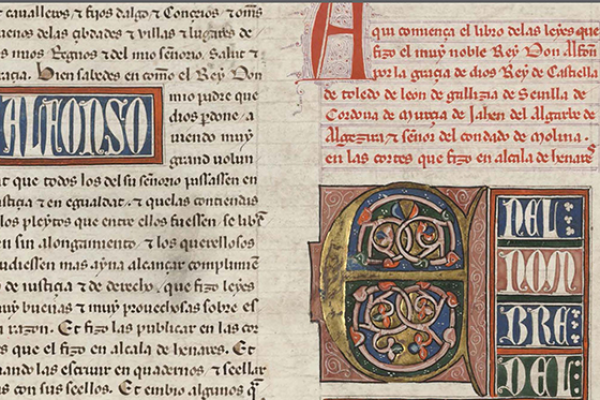 caualleros ⁊ fijos dalgo ⁊ Conceios ⁊ omēs
buenos delas çibdades ⁊ villas ⁊ lugares de
los mios Regnos ⁊ del mio señorio. Salut ⁊
gracia. Bien sabedes en com̄o el Rey Don
ALFONSO
mio padre que
dios perdone / a
uiendo muy
grand uolun
t que todos los del su señorio passassen en
justiçia ⁊ en egualdat. ⁊ quelas contiendas
⁊ los pleytos que entre ellos fuessen. se libr
en sin alongamiento. ⁊ los querellosos
pudiessen mas ayna alcançar complimiē
de iusticia ⁊ de derecho. que fizo leyes
muy buenas ⁊ muy prouechosas sobre es
razon. Et fizo las publicar en las cor
s que el fizo en alcala de henares. Et
mando las escriuir en quadernos ⁊ seellar
las con sus seellos. Et embio algunos q̄
Aqui comiença el libro delas leyes que
fizo el muy noble Rey Don Alfon
por la graçia de dios Rey de Castiella
de toledo de leon de gallizia de Seuilla de
Cordoua de murçia de Jahen del Algarbe de
Algezira ⁊ señor del condado de molina.
en las cortes que fizo en alcala de henares
E
NEL
NOM
BRE:
DEL: